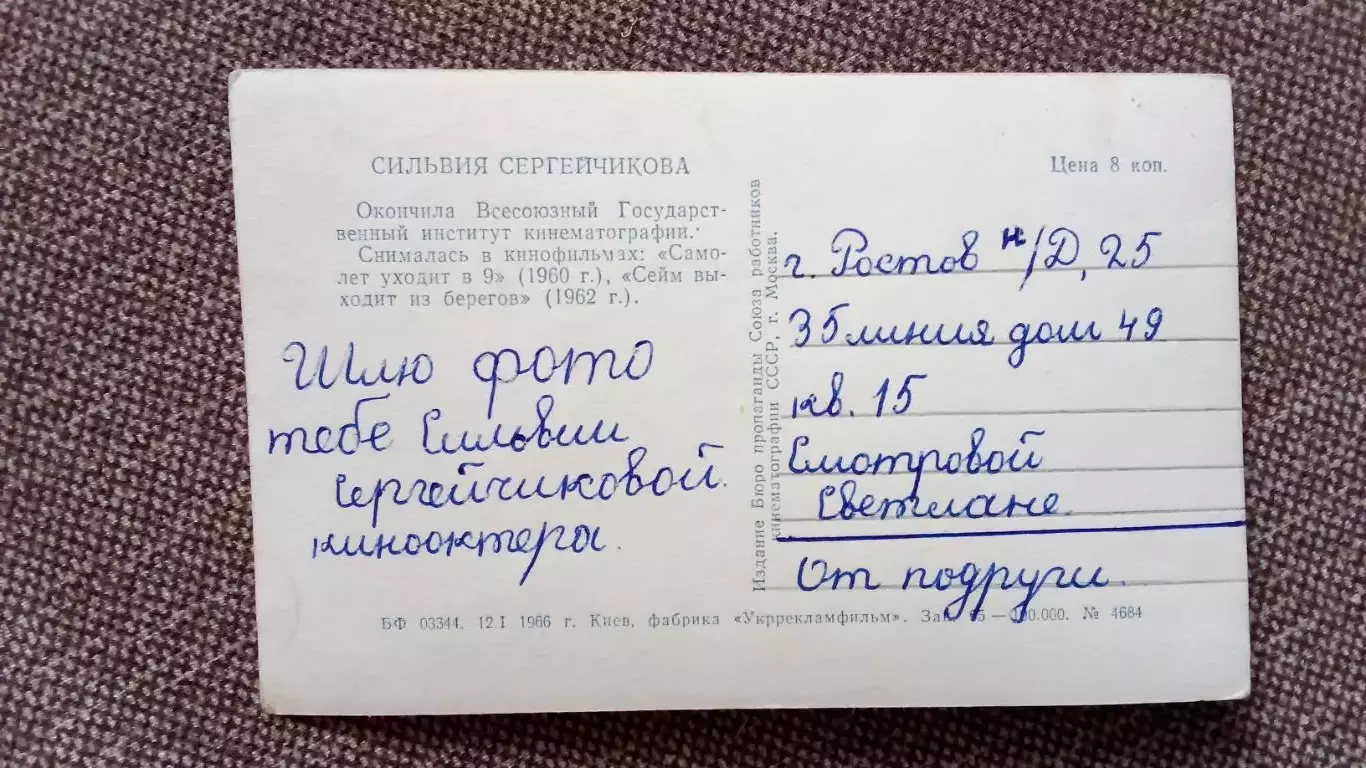 СИЛЬВИЯ СЕРГЕЙЧИКОВА
Окончила Всесоюзный Государст-
венный институт кинематографии.
Снималась в кинофильмах: «Само-
лет уходит в 9» (1960 г.), «Сейм вы-
ходит из берегов» (1962 г.).
Шлю фото
тебе Сильвии
Сергейчиковой.
киноактеры.
Издание Бюро пропаганды Союза работников
кинематографии СССР, г. Москва.
Цена 8 коп.
г. Ростов н/Д, 25
35 линия дом 49
кв. 15
Смотровой
Светлане.
От подруги.
БФ 03344. 12 I 1966 г. Киев, фабрика «Укррекламфильм». № 4684